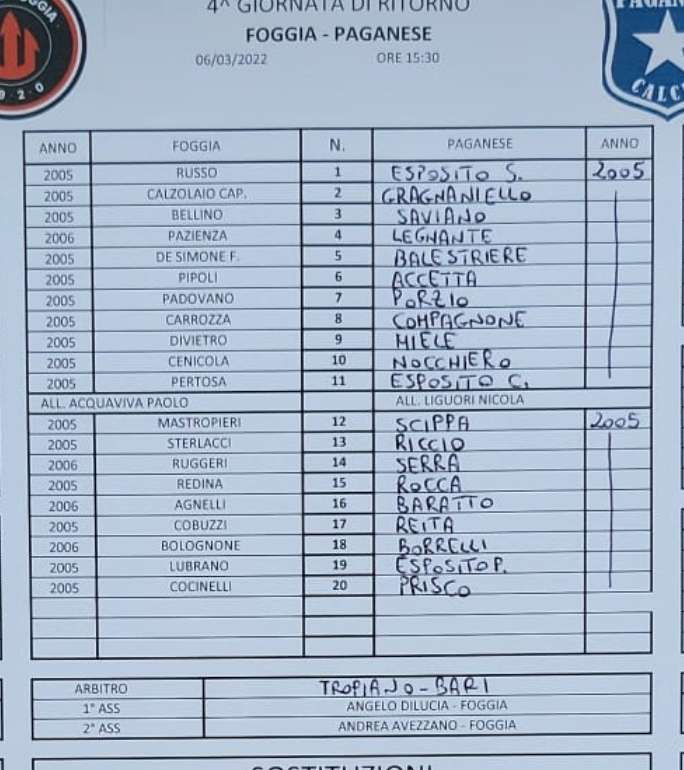 4^ GIORNATA DI RITORNO
FOGGIA - PAGANESE
06/03/2022 ORE 15:30
ANNO FOGGIA N. PAGANESE ANNO
2005 RUSSO 1 ESPOSITO S. 2005
2005 CALZOLAIO CAP. 2 GRAGNANIELLO
2005 BELLINO 3 SAVIANO
2006 PAZIENZA 4 LEGNANTE
2005 DE SIMONE F. 5 BALESTRIERE
2005 PIPOLI 6 ACCETTA
2005 PADOVANO 7 PORZIO
2005 CARROZZA 8 COMPAGNONE
2005 DIVIETRO 9 MIELE
2005 CENICOLA 10 NOCCHIERO
2005 PERTOSA 11 ESPOSITO C.
ALL. ACQUAVIVA PAOLO ALL. LIGUORI NICOLA
2005 MASTROPIERI 12 SCIPPA 2005
2005 STERLACCI 13 RICCIO
2006 RUGGERI 14 SERRA
2005 REDINA 15 ROCCA
2006 AGNELLI 16 BARATTO
2005 COBUZZI 17 REITA
2006 BOLOGNONE 18 BORRELLI
2005 LUBRANO 19 ESPOSITO P.
2005 COCINELLI 20 PRISCO
ARBITRO TROPIANO - BARI
1° ASS ANGELO DILUCIA - FOGGIA
2° ASS ANDREA AVEZZANO - FOGGIA
SOSTITUZIONI